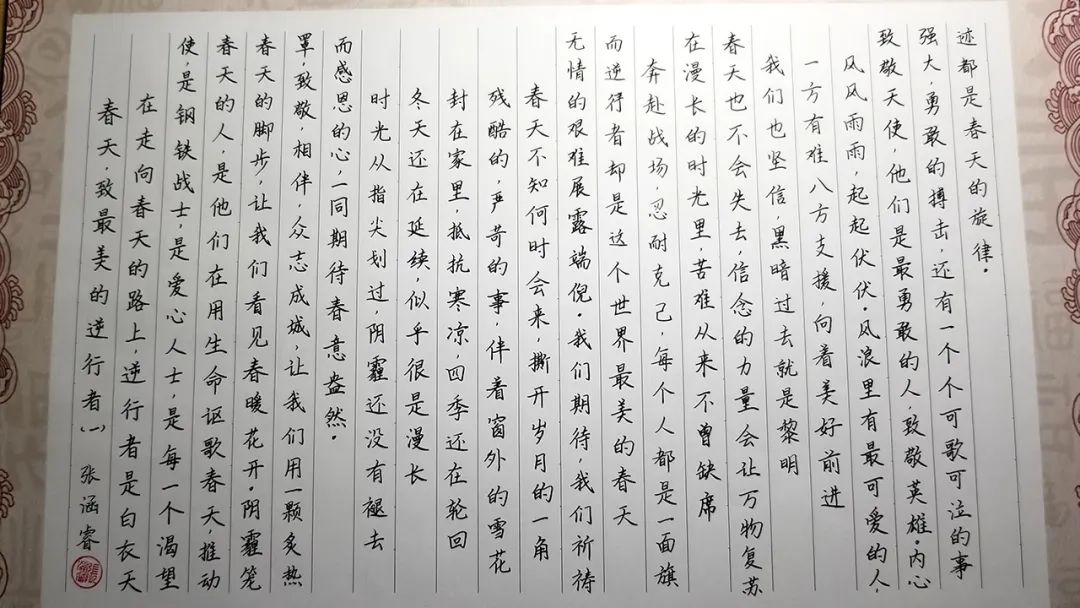 春天,致最美的逆行者(一) 张涵睿
在走向春天的路上,逆行者是白衣天
使,是钢铁战士,是爱心人士,是每一个渴望
春天的人,是他们在用生命讴歌春天推动
春天的脚步,让我们看见春暖花开。阴霾笼
罩,致敬,相伴,众志成城,让我们用一颗炙热
而感恩的心,一同期待春意盎然。
时光从指尖划过,阴霾还没有褪去
冬天还在延续,似乎很是漫长
封在家里,抵抗寒凉,四季还在轮回
残酷的,严苛的事,伴着窗外的雪花
春天不知何时会来,撕开岁月的一角
无情的艰难展露端倪。我们期待,我们祈祷
而逆行者却是这个世界最美的春天
奔赴战场,忍耐克己,每个人都是一面旗
在漫长的时光里,苦难从来不曾缺席
春天也不会失去,信念的力量会让万物复苏
我们也坚信,黑暗过去就是黎明
一方有难八方支援,向着美好前进
风风雨雨,起起伏伏。风浪里有最可爱的人,
致敬天使,他们是最勇敢的人,致敬英雄。内心
强大,勇敢的搏击,还有一个个可歌可泣的事
迹都是春天的旋律。